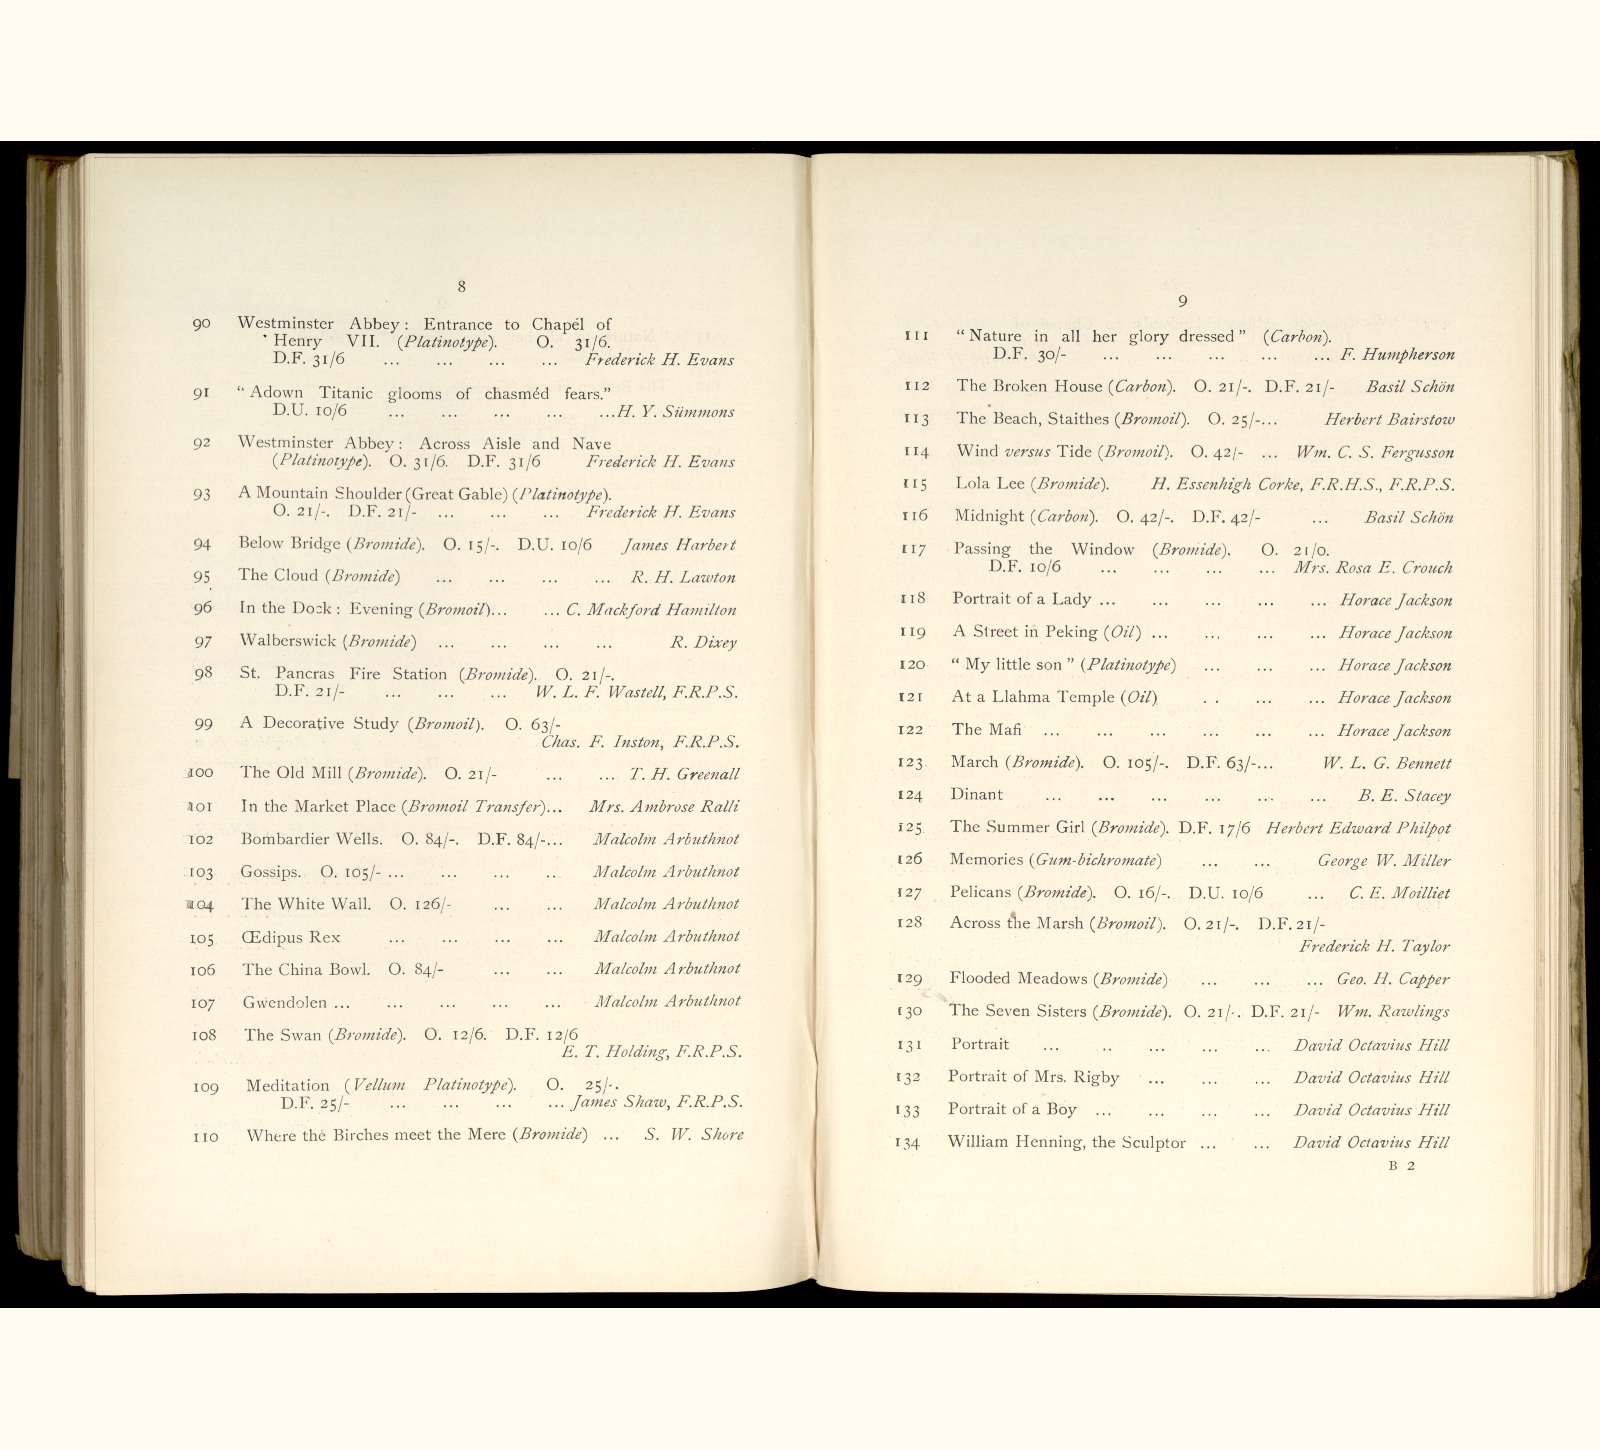 8
90 Westminster Abbey: Entrance to Chapél of
Henry VII. (Platinotype). O. 31/6.
D.F. 31/6 ... ... ... ... Frederick H. Evans
91 “Adown Titanic glooms of chasméd fears.”
D.U. 10/6 ... ... ... ... ...H. Y. Sümmons
92 Westminster Abbey: Across Aisle and Nave
(Platinotype). O. 31/6. D.F. 31/6 Frederick H. Evans
93 A Mountain Shoulder (Great Gable) (Platinotype).
O. 21/-. D.F. 21/- ... ... ... Frederick H. Evans
94 Below Bridge (Bromide). O. 15/-. D.U. 10/6 James Harbert
95 The Cloud (Bromide) ... ... ... ... R. H. Lawton
96 In the Dock: Evening (Bromoil)... ... C. Mackford Hamilton
97 Walberswick (Bromide) ... ... ... ... R. Dixey
98 St. Pancras Fire Station (Bromide). O. 21/-.
D.F. 21/- ... ... ... W. L. F. Wastell, F.R.P.S.
99 A Decorative Study (Bromoil). O. 63/-
Chas. F. Inston, F.R.P.S.
100 The Old Mill (Bromide). O. 21/- ... ... T. H. Greenall
101 In the Market Place (Bromoil Transfer)... Mrs. Ambrose Ralli
102 Bombardier Wells. O. 84/-. D.F. 84/-... Malcolm Arbuthnot
103 Gossips. O. 105/- ... ... ... .. Malcolm Arbuthnot
104 The White Wall. O. 126/- ... ... Malcolm Arbuthnot
105 Œdipus Rex ... ... ... ... Malcolm Arbuthnot
106 The China Bowl. O. 84/- ... ... Malcolm Arbuthnot
107 Gwendolen ... ... ... ... ... Malcolm Arbuthnot
108 The Swan (Bromide). O. 12/6. D.F. 12/6
E. T. Holding, F.R.P.S.
109 Meditation (Vellum Platinotype). O. 25/-.
D.F. 25/- ... ... ... ... James Shaw, F.R.P.S.
110 Where the Birches meet the Mere (Bromide) ... S. W. Shore
9
111 “Nature in all her glory dressed” (Carbon).
D.F. 30/- ... ... ... ... ... F. Humpherson
112 The Broken House (Carbon). O. 21/-. D.F. 21/- Basil Schön
113 The Beach, Staithes (Bromoil). O. 25/-... Herbert Bairstow
114 Wind versus Tide (Bromoil). O. 42/- ... Wm. C. S. Fergusson
115 Lola Lee (Bromide). H. Essenhigh Corke, F.R.H.S., F.R.P.S.
116 Midnight (Carbon). O. 42/-. D.F. 42/- ... Basil Schön
117 Passing the Window (Bromide). O. 21/0.
D.F. 10/6 ... ... ... ... Mrs. Rosa E. Crouch
118 Portrait of a Lady ... ... ... ... ... Horace Jackson
119 A Street in Peking (Oil) ... ... ... ... Horace Jackson
120 “My little son” (Platinotype) ... ... ... Horace Jackson
121 At a Llahma Temple (Oil) .. ... ... Horace Jackson
122 The Mafi ... ... ... ... ... ... Horace Jackson
123 March (Bromide). O. 105/-. D.F. 63/-... W. L. G. Bennett
124 Dinant ... ... ... ... ... ... B. E. Stacey
125 The Summer Girl (Bromide). D.F. 17/6 Herbert Edward Philpot
126 Memories (Gum-bichromate) ... ... George W. Miller
127 Pelicans (Bromide). O. 16/-. D.U. 10/6 ... C. E. Moilliet
128 Across the Marsh (Bromoil). O. 21/-. D.F. 21/-
Frederick H. Taylor
129 Flooded Meadows (Bromide) ... ... ... Geo. H. Capper
130 The Seven Sisters (Bromide). O. 21/-. D.F. 21/- Wm. Rawlings
131 Portrait ... .. ... ... ... David Octavius Hill
132 Portrait of Mrs. Rigby ... ... ... David Octavius Hill
133 Portrait of a Boy ... ... ... ... David Octavius Hill
134 William Henning, the Sculptor ... ... David Octavius Hill
B 2